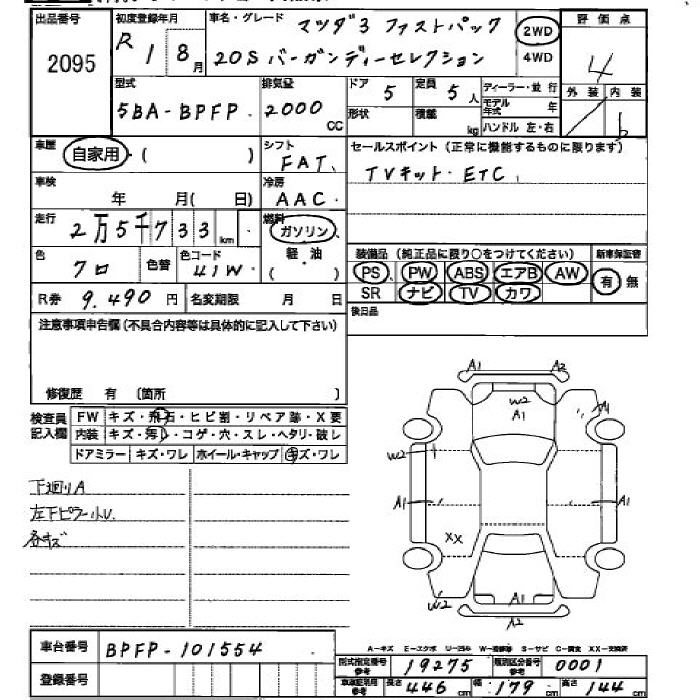 出品番号 初度登録年月 車名・グレード マツダ3 ファストバック 2WD 評価点
2095 R 1 8月 20S バーガンディーセレクション 4WD 4
型式 排気量 ドア 5 定員 5人 ディーラー・並行 外装 内装
5BA-BPFP 2000 CC 形状 積載 kg モデル年式 年 b
ハンドル 左・右
車歴 自家用・( ) シフト FAT セールスポイント (正常に機能するものに限ります)
車検 年 月( 日) 冷房 AAC TVキット. ETC
走行 2万5千733km 燃料 ガソリン
軽・油
( )
色 クロ 色替 色コード 41W 装備品 (純正品に限り○をつけてください) 新車保証書
PS PW ABS エアB AW 有 無
R券 9.490円 名変期限 月 日 SR ナビ TV カワ
注意事項申告欄(不具合内容等は具体的に記入して下さい) 後日品
修復歴 有 〔箇所 〕
検査員記入欄 FW キズ・飛石・ヒビ割・リペア跡・X要
内装 キズ・汚レ・コゲ・穴・スレ・ヘタリ・破レ
ドアミラー キズ・ワレ ホイール・キャップ キズ・ワレ
A1 A2
W2
A1
A1
W2
A1 A1
XX
W2 A1
A2
下廻りA
左下ピラー小U.
各キズ
A-キズ E-エクボ U-凹み W-補修跡 S-サビ C-腐食 XX-交換済
車台番号 BPFP-101554
型式指定番号 参考 19275 類別区分番号 参考 0001
登録番号 車庫証明用 参考 長さ 446cm 幅 179cm 高さ 144cm